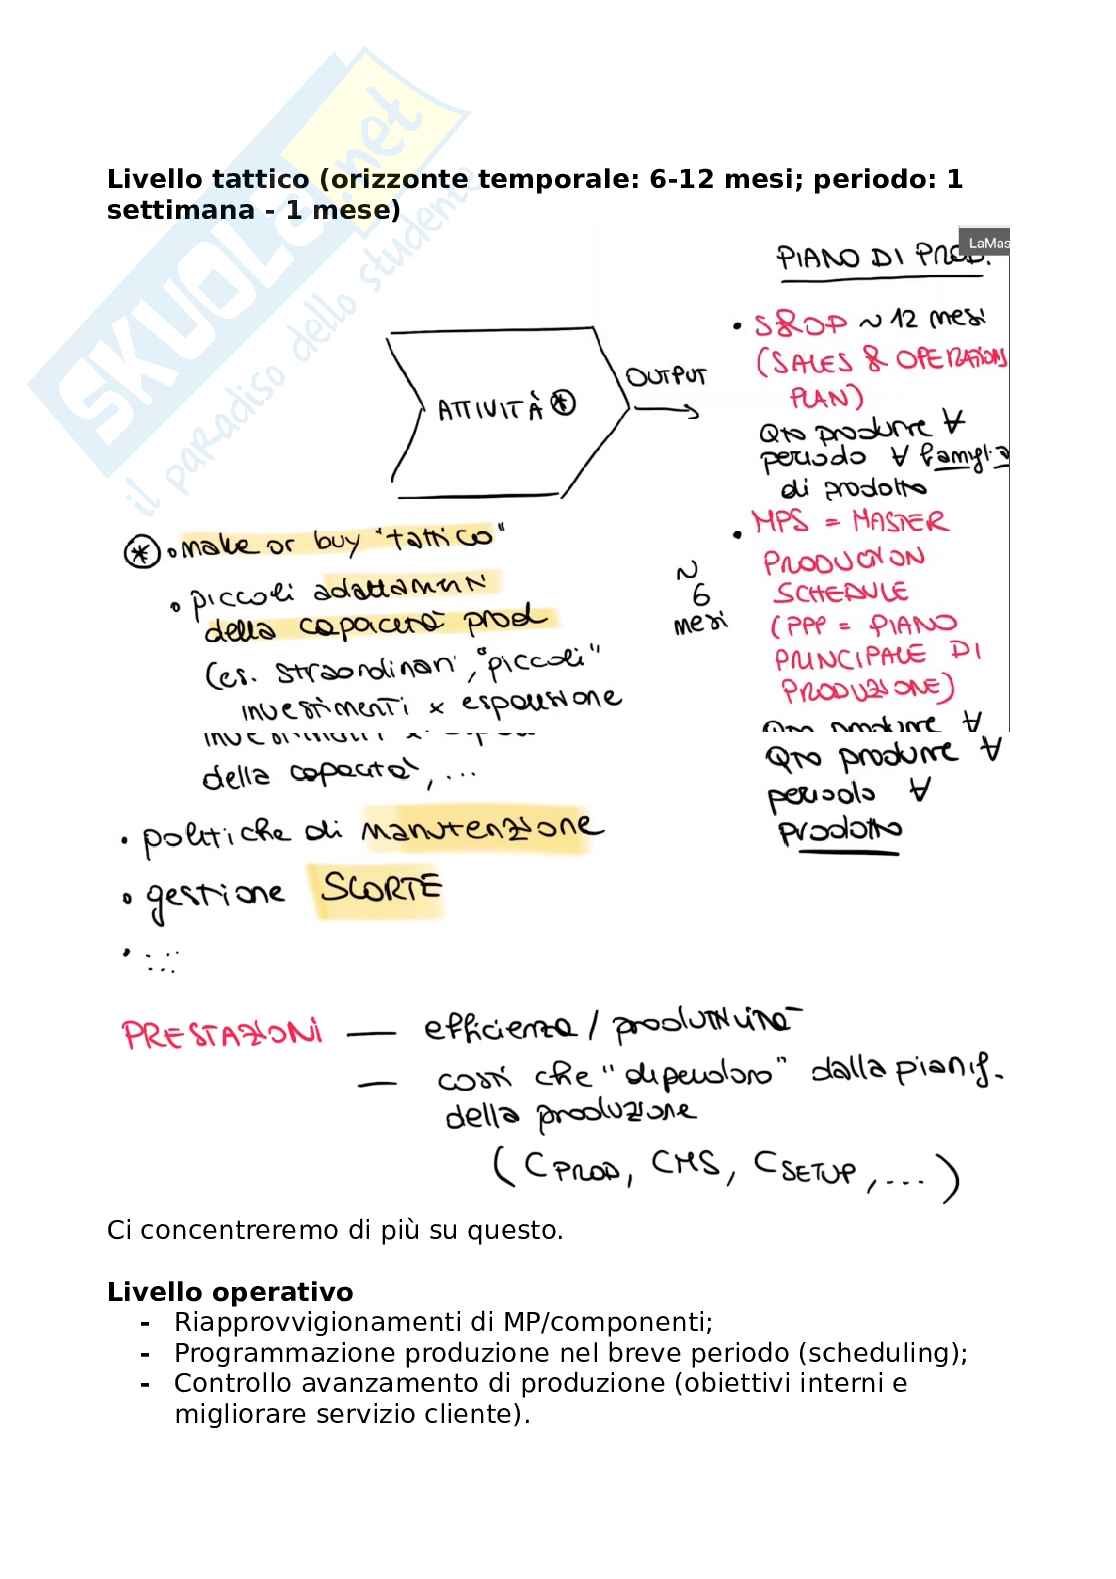 SKUOLa.net
il paradiso dello studente
Livello tattico (orizzonte temporale: 6-12 mesi; periodo: 1
settimana - 1 mese)
LaMas
PIANO DI PROD.
• S&OP ~ 12 mesi
(SALES & OPERATIONS
PLAN)
Qto produrre ∀
periodo ∀ famiglia
di prodotto
ATTIVITÀ *
OUTPUT
• MPS = MASTER
PRODUCTION
SCHEDULE
(PPP = PIANO
PRINCIPALE DI
PRODUZIONE)
~
6
mesi
Qto produrre ∀
Qto produrre ∀
periodo ∀
prodotto
* • make or buy "tattico"
• piccoli adattamenti
della capacità prod
(es. straordinari, "piccoli"
investimenti x espansione
della capacità, ...
• politiche di manutenzione
• gestione SCORTE
• ...
PRESTAZIONI — efficienza / produttività
— costi che "dipendono" dalla pianif.
della produzione
(CPROD, CMS, CSETUP, ....)
Ci concentreremo di più su questo.
Livello operativo
- Riapprovvigionamenti di MP/componenti;
- Programmazione produzione nel breve periodo (scheduling);
- Controllo avanzamento di produzione (obiettivi interni e
migliorare servizio cliente).